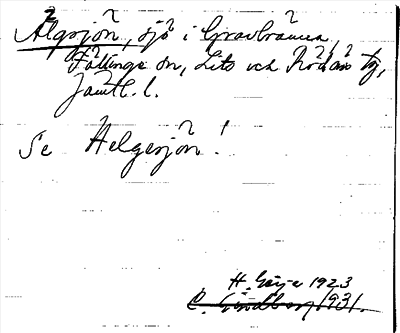 Älgsjön, sjö i Gravbränna,
Fåtinge sn, Lits och Rödöns tg,
Jämtl. l.
Se Helgesjön!
H. Geijer 1923
C. Lindberg 1931.